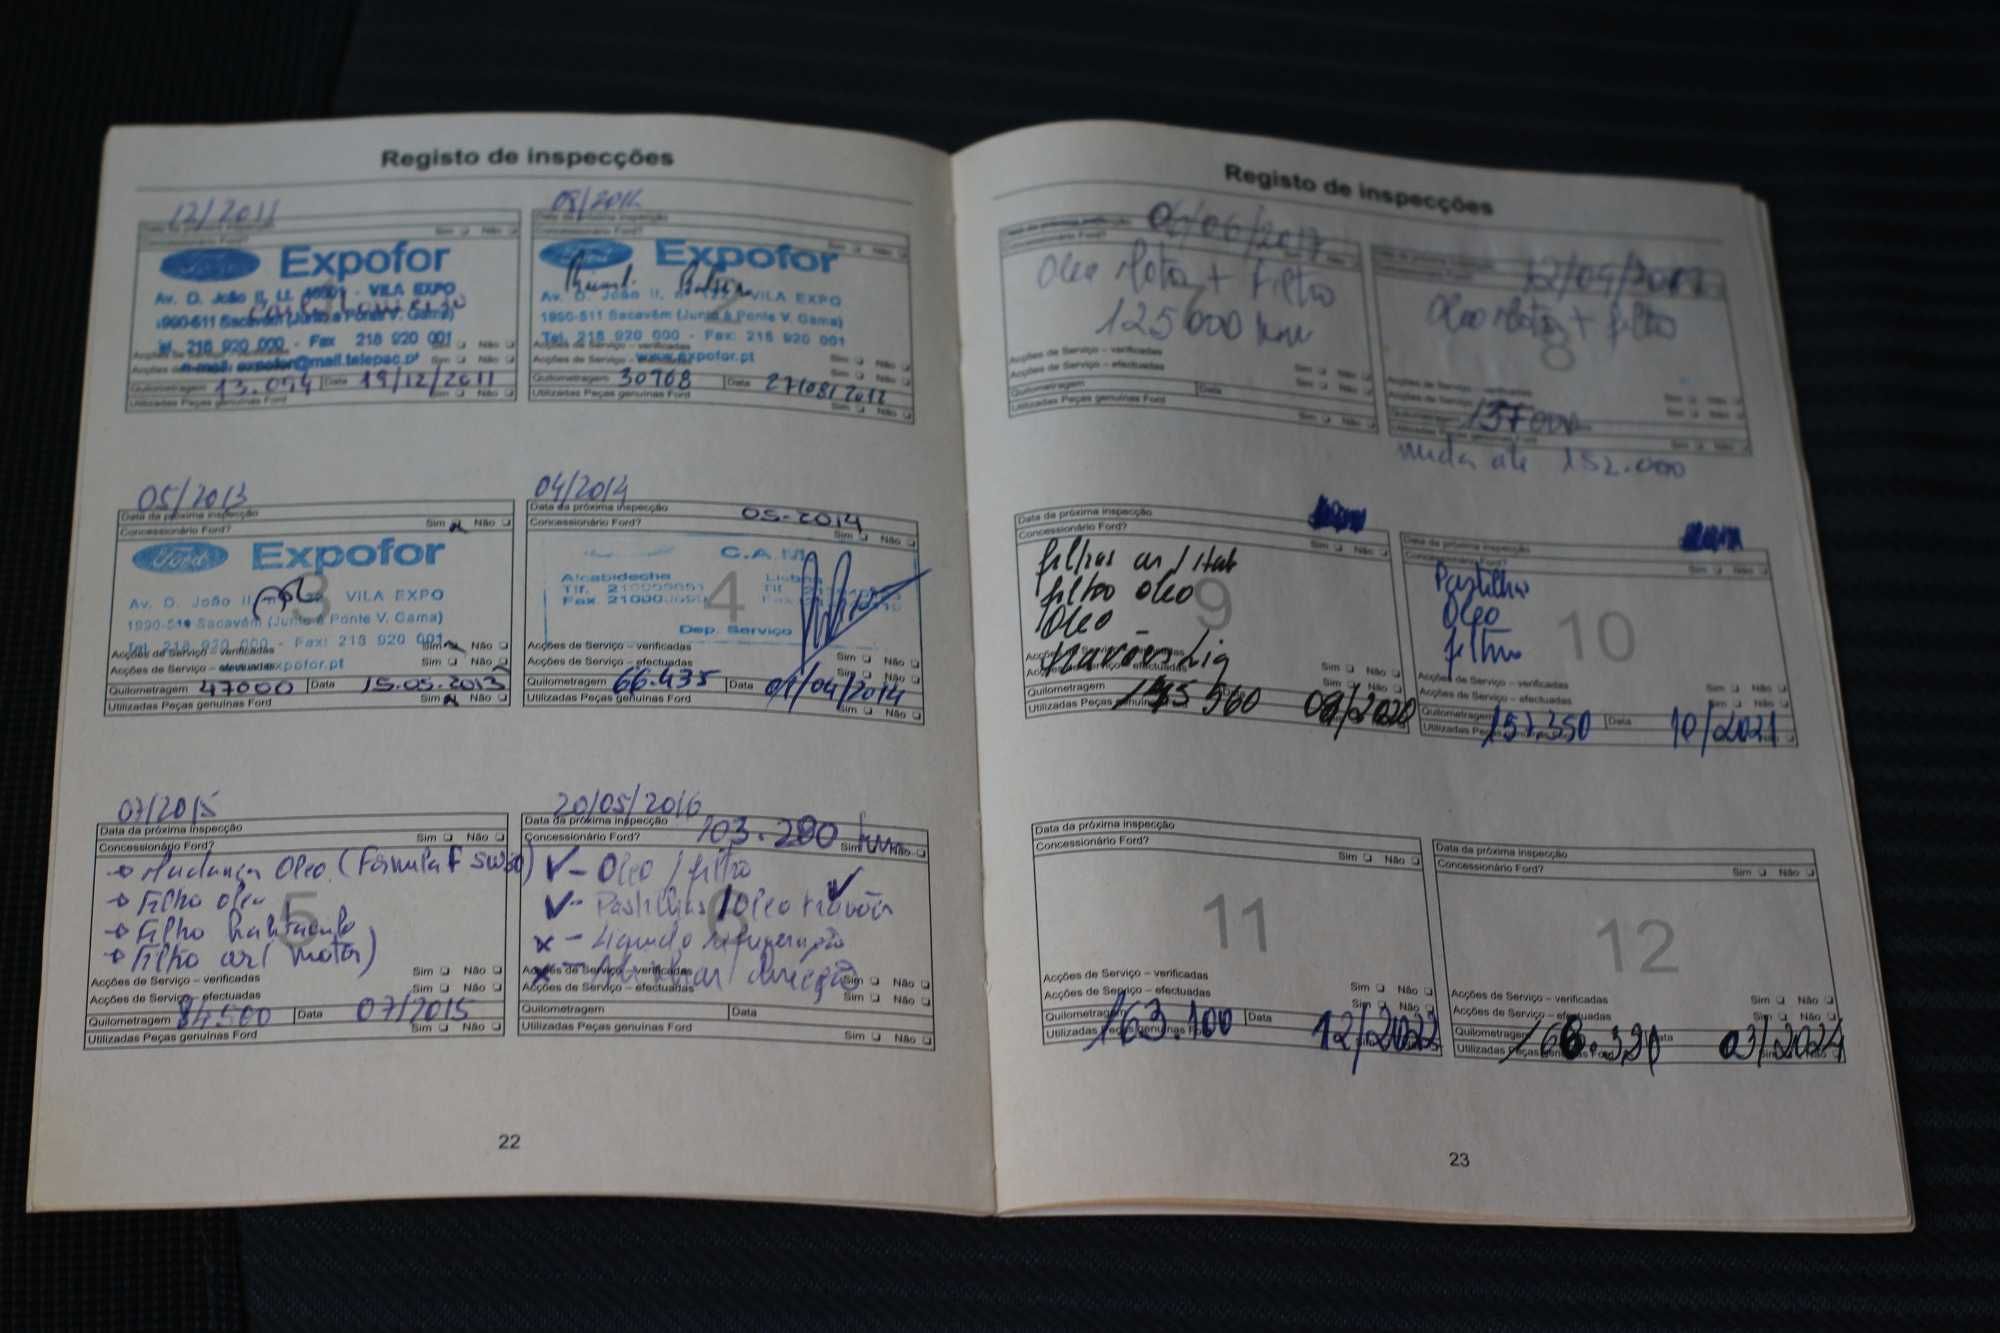 Registo de inspecções
12/2011
Sim Não
Concessionário Ford?
Ford Expofor
Av. D. João II, Lt. - VILA EXPO
1990-511 Sacavém (Junto à Ponte V. Gama)
Tel. 218 920 000 - Fax 218 920 001
e-mail: expofor@mail.telepac.pt Sim Não
Quilometragem 13.094 Data 19/12/2011
Utilizadas Peças genuínas Ford Sim Não
08/2012
Data da próxima inspecção
Concessionário Ford? Sim Não
Ford Expofor
Av. D. João II, VILA EXPO
1990-511 Sacavém (Junto à Ponte V. Gama)
Tel. 218 920 000 - Fax: 218 920 001
Acções de Serviço – verificadas
www.expofor.pt Sim Não
Quilometragem 30768 Data 27/08/2012
Utilizadas Peças genuínas Ford Sim Não
05/2013
Data da próxima inspecção
Concessionário Ford? Sim x Não
3
Ford Expofor
Av. D. João II, VILA EXPO
1990-511 Sacavém (Junto à Ponte V. Gama)
Tel. 218 920 000 - Fax: 218 920 001
Acções de Serviço – verificadas Sim x Não
Acções de Serviço – efectuadas expofor.pt Sim Não
Quilometragem 47000 Data 15.05.2013
Utilizadas Peças genuínas Ford Sim x Não
04/2014
Data da próxima inspecção 05-2014
Concessionário Ford? Sim Não
4
C.A.M.
Alcabideche
Tlf.
Fax.
Dep. Serviço
Acções de Serviço – verificadas Sim Não
Acções de Serviço – efectuadas Sim Não
Quilometragem 66.435 Data 01/04/2014
Utilizadas Peças genuínas Ford Sim Não
07/2015
Data da próxima inspecção
Concessionário Ford? Sim Não
5
→ Mudança Oleo (Formula F 5W30)
→ Filtro oleo
→ Filtro habitaculo
→ Filtro ar (motor)
Acções de Serviço – verificadas Sim Não
Acções de Serviço – efectuadas Sim Não
Quilometragem 84500 Data 07/2015
Utilizadas Peças genuínas Ford Sim Não
20/05/2016
Data da próxima inspecção 103.280 km
Concessionário Ford? Sim Não
6
✓ - Oleo / filtro
✓ - Pastilhas / Oleo travões ✓
x - Liquido refrigeração
x - Alinhar direcção
Acções de Serviço – verificadas Sim Não
Acções de Serviço – efectuadas Sim Não
Quilometragem Data
Utilizadas Peças genuínas Ford Sim Não
22
Registo de inspecções
06/2017
Concessionário Ford? Sim Não
Oleo Motor + Filtro
125000 km
Acções de Serviço – verificadas Sim Não
Acções de Serviço – efectuadas Sim Não
Quilometragem Data
Utilizadas Peças genuínas Ford Sim Não
12/09/
Oleo Motor + filtro
8
Acções de Serviço – verificadas Sim Não
Acções de Serviço Sim Não
137000
Sim Não
muda até 152.000
Data da próxima inspecção
Concessionário Ford? Sim Não
9
filtros ar / Hab
filtro oleo
Oleo
Acções de Serviço – verificadas Sim Não
Sim Não
Quilometragem 145 560 09/2020
Utilizadas Peças genuínas
Data da próxima inspecção
Concessionário Ford?
10
Pastilhas
Oleo
filtro
Acções de Serviço – verificadas Sim Não
Acções de Serviço – efectuadas Sim Não
Quilometragem 157.350 Data 10/2021
Utilizadas Peças Não
Data da próxima inspecção
Concessionário Ford? Sim Não
11
Acções de Serviço – verificadas Sim Não
Acções de Serviço – efectuadas Sim Não
Quilometragem 163.100 Data 12/2022
Utilizadas Peças genuínas Ford
Data da próxima inspecção
Concessionário Ford? Sim Não
12
Acções de Serviço – verificadas Sim Não
Acções de Serviço – efectuadas Sim Não
Quilometragem 166.320 Data 03/2024
Utilizadas Peças genuínas Ford Sim Não
23